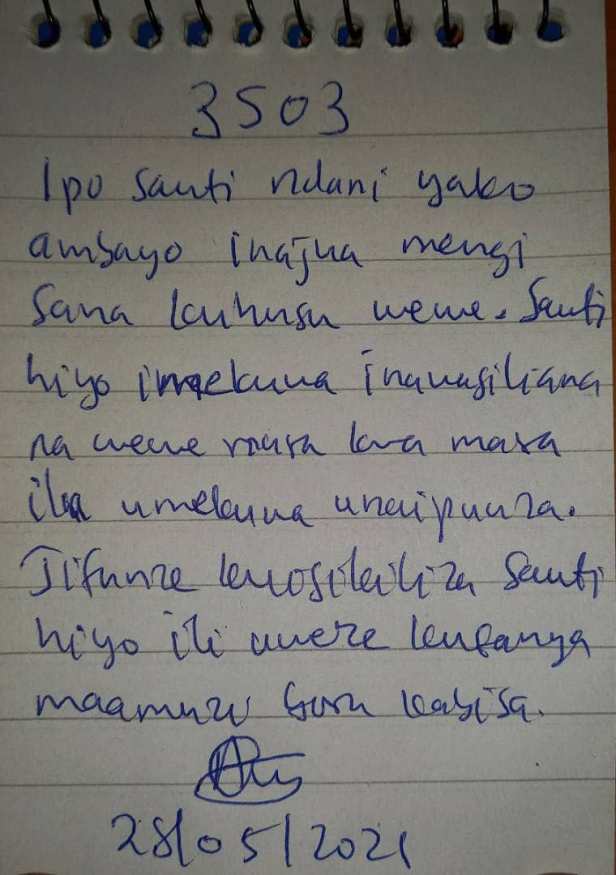 3503
Ipo sauti ndani yako
ambayo inajua mengi
sana kuhusu wewe. Sauti
hiyo imekuwa inawasiliana
na wewe mara kwa mara
ila umekuwa unaipuuza.
Jifunze kuosikiliza sauti
hiyo ili uweze kufanya
maamuzi bora kabisa.
28/05/2021